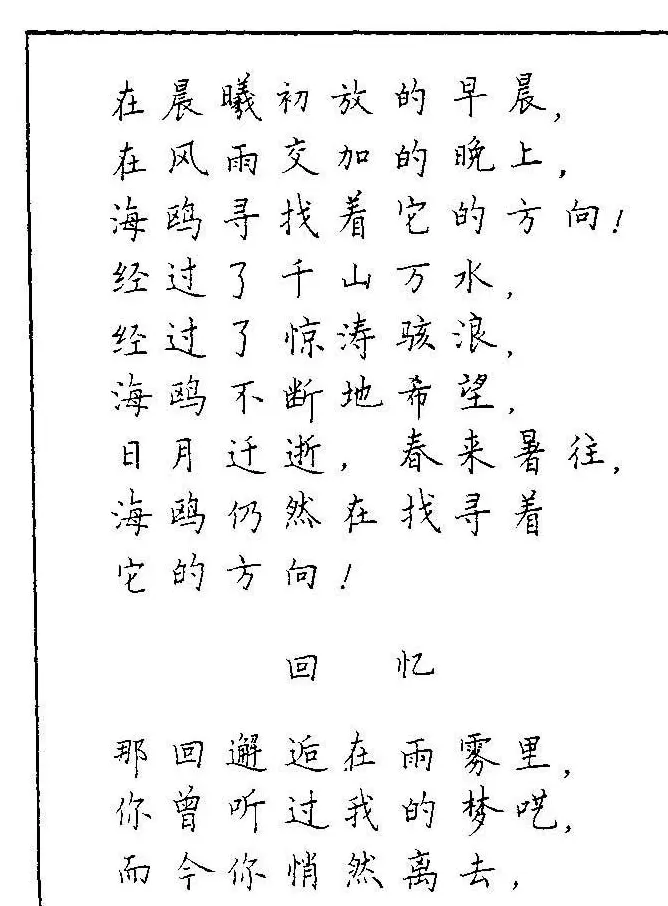 在晨曦初放的早晨，
在风雨交加的晚上，
海鸥寻找着它的方向！
经过了千山万水，
经过了惊涛骇浪，
海鸥不断地希望，
日月迁逝，春来暑往，
海鸥仍然在找寻着
它的方向！
回 忆
那回邂逅在雨雾里，
你曾听过我的梦呓，
而今你悄然离去，